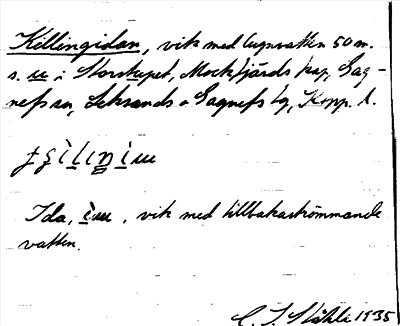 Killingidan, vik med lugnvatten 50 m.
s. i Storskupet, Mockfjärds kap, Gag-
nefs sn, Leksands o Gagnefs tg, Kopp. l.
Ida, vik med tillbakaströmmande
vatten.
C. I. Ståhle 1935